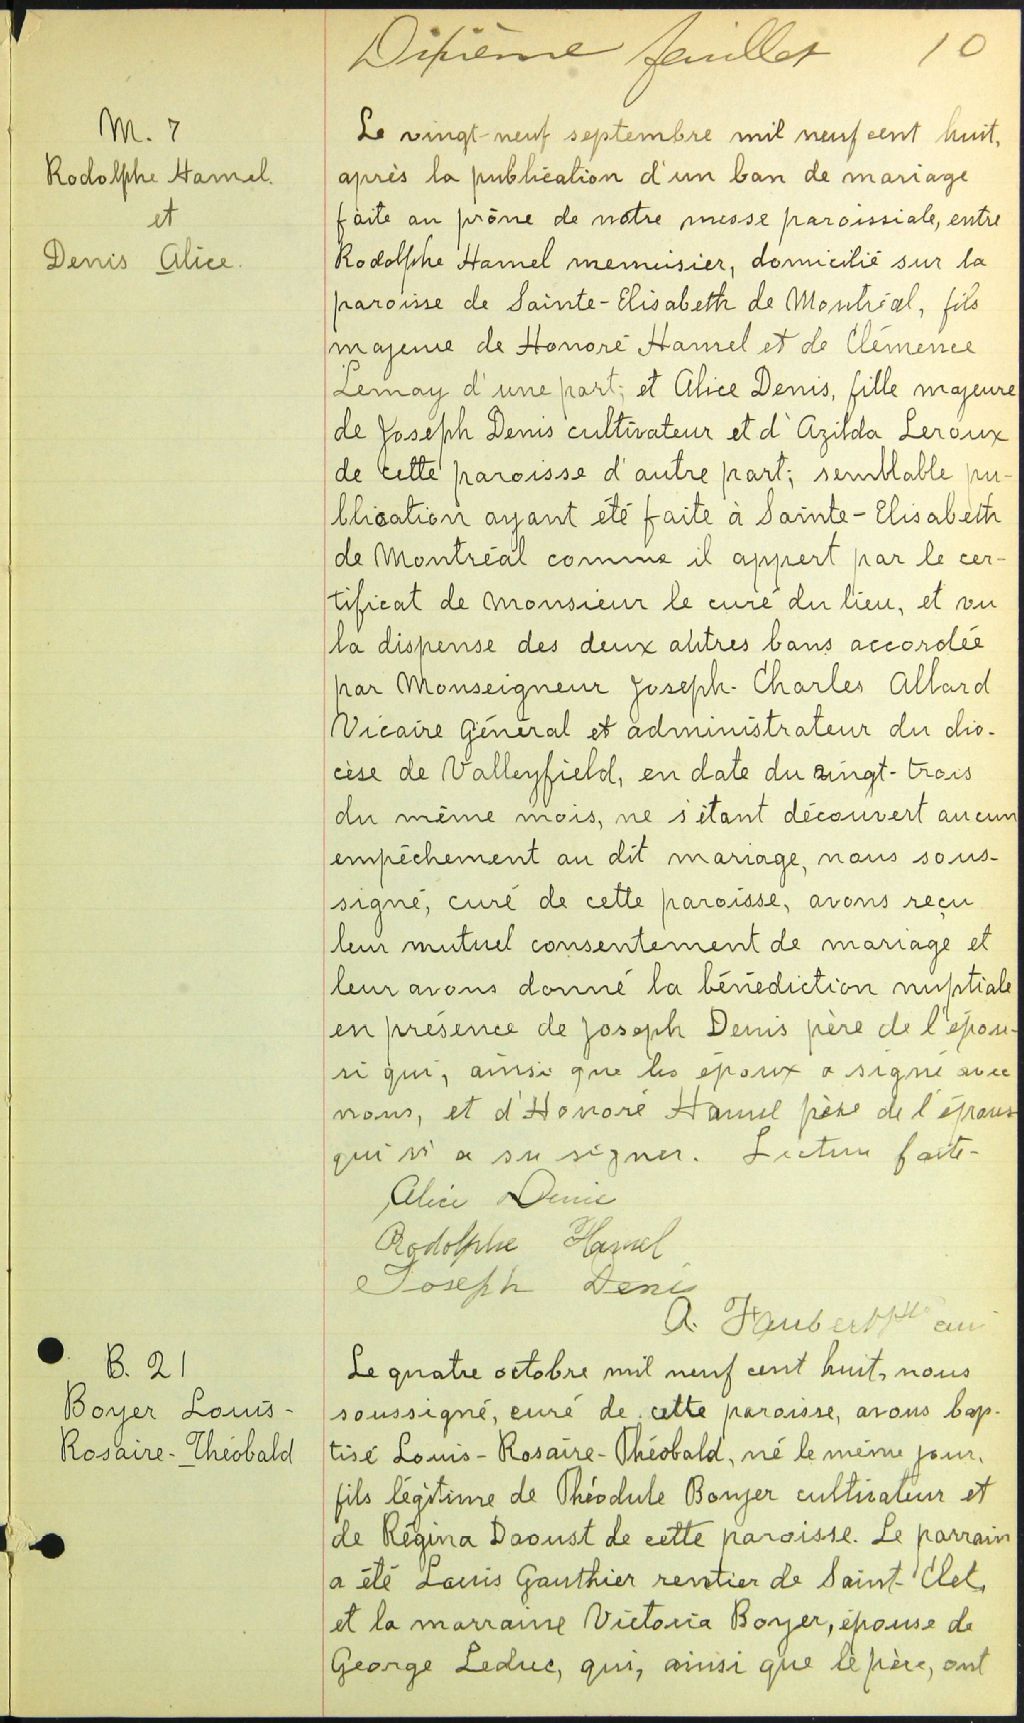 Dixième feuillet 10
M. 7
Rodolphe Hamel.
et
Denis Alice.
Le vingt-neuf septembre mil neuf cent huit,
après la publication d'un ban de mariage
faite au prône de notre messe paroissiale, entre
Rodolphe Hamel menuisier, domicilié sur la
paroisse de Sainte-Elisabeth de Montréal, fils
majeur de Honoré Hamel et de Clémence
Lemay d'une part; et Alice Denis, fille majeure
de Joseph Denis cultivateur et d'Azilda Leroux
de cette paroisse d'autre part; semblable pu-
blication ayant été faite à Sainte-Elisabeth
de Montréal comme il appert par le cer-
tificat de Monsieur le curé du lieu, et vu
la dispense des deux autres bans accordée
par Monseigneur Joseph-Charles Allard
Vicaire Général et administrateur du dio-
cèse de Valleyfield, en date du vingt-trois
du même mois, ne s'étant découvert aucun
empêchement au dit mariage, nous sous-
signé, curé de cette paroisse, avons reçu
leur mutuel consentement de mariage et
leur avons donné la bénédiction nuptiale
en présence de Joseph Denis père de l'épou-
se qui, ainsi que les époux a signé avec
nous, et d'Honoré Hamel père de l'époux
qui n'a su signer. Lecture faite-
Alice Denis
Rodolphe Hamel
Joseph Denis
A. Faubert ptre curé
B. 21
Boyer Louis-
Rosaire-Théobald
Le quatre octobre mil neuf cent huit, nous
soussigné, curé de cette paroisse, avons bap-
tisé Louis-Rosaire-Théobald, né le même jour,
fils légitime de Théodule Boyer cultivateur et
de Régina Daoust de cette paroisse. Le parrain
a été Louis Gauthier rentier de Saint-Clet,
et la marraine Victoria Boyer, épouse de
George Leduc, qui, ainsi que le père, ont